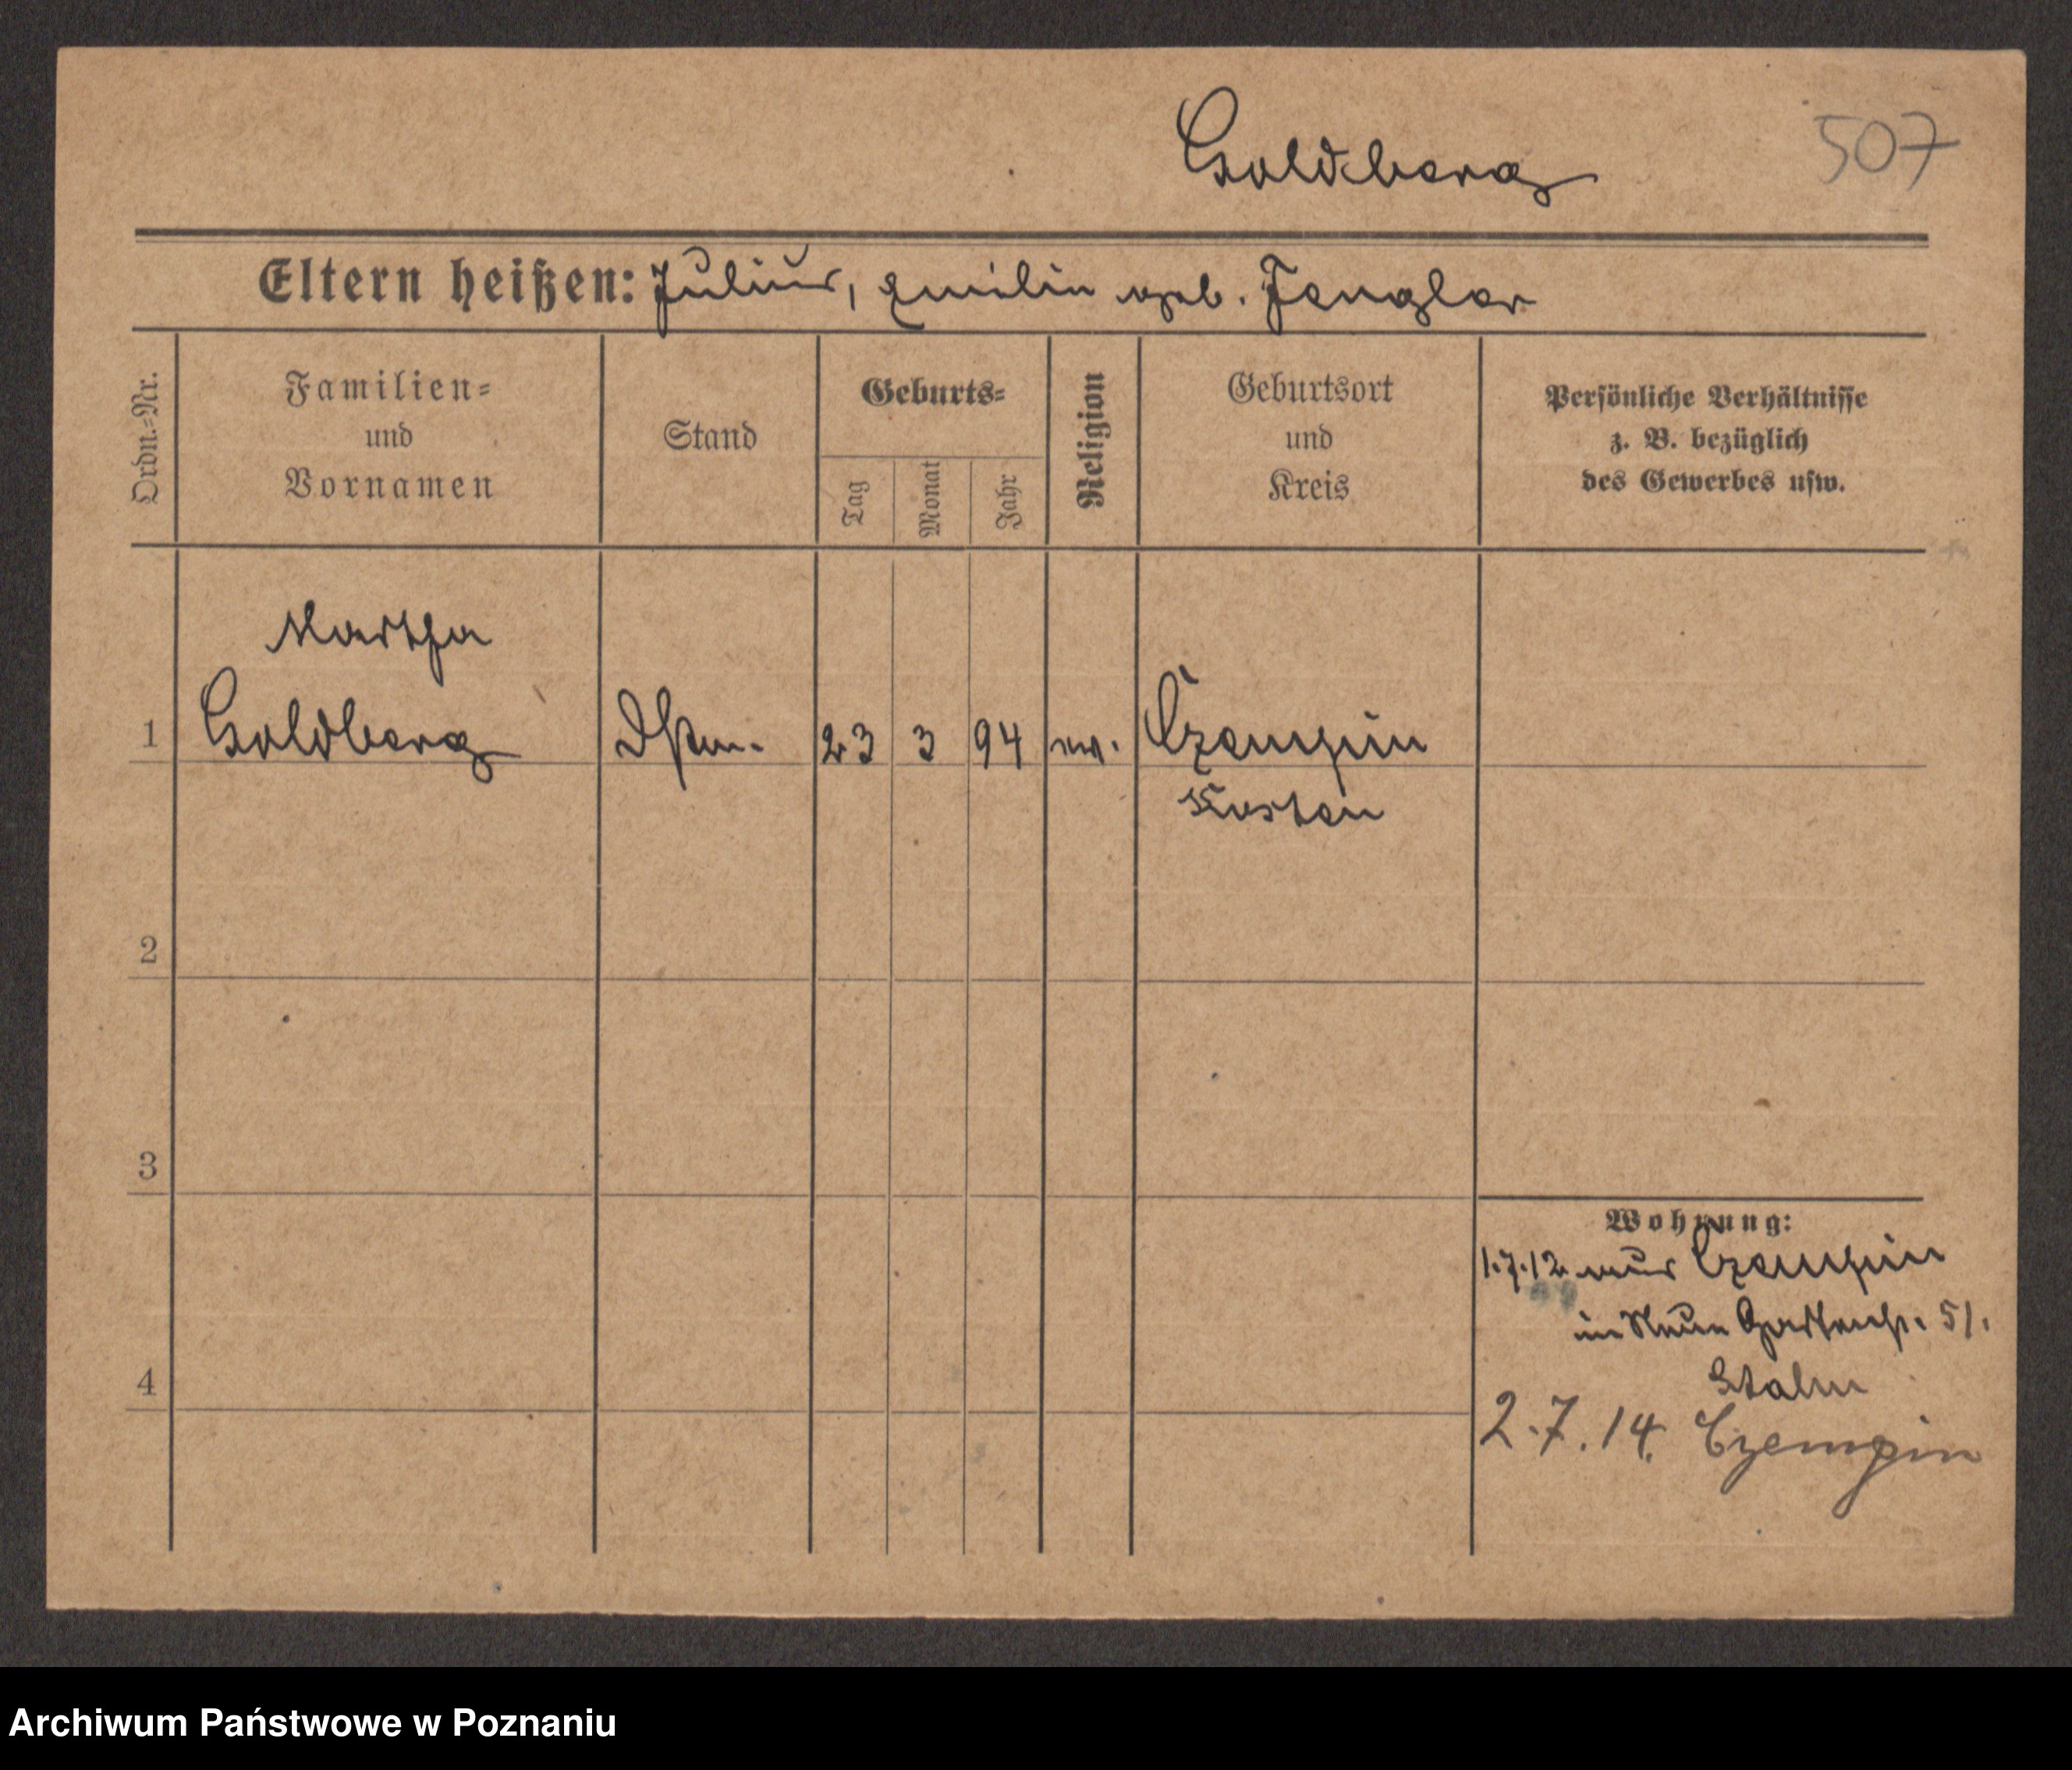 Goldberg
507
Eltern heißen: Julius, Emilie geb. Fengler
Ordn.=Nr.
Familien=
und
Vornamen
Stand
Geburts=
Tag
Monat
Jahr
Religion
Geburtsort
und
Kreis
Persönliche Verhältnisse
z. B. bezüglich
des Gewerbes usw.
Martha
1 Goldberg 23 3 94 ev. Czempin
Kosten
2
3
4
Wohnung:
1.7.12 aus Czempin
in Neue Gartenstr. 51.
2.7.14. Czempin
Archiwum Państwowe w Poznaniu